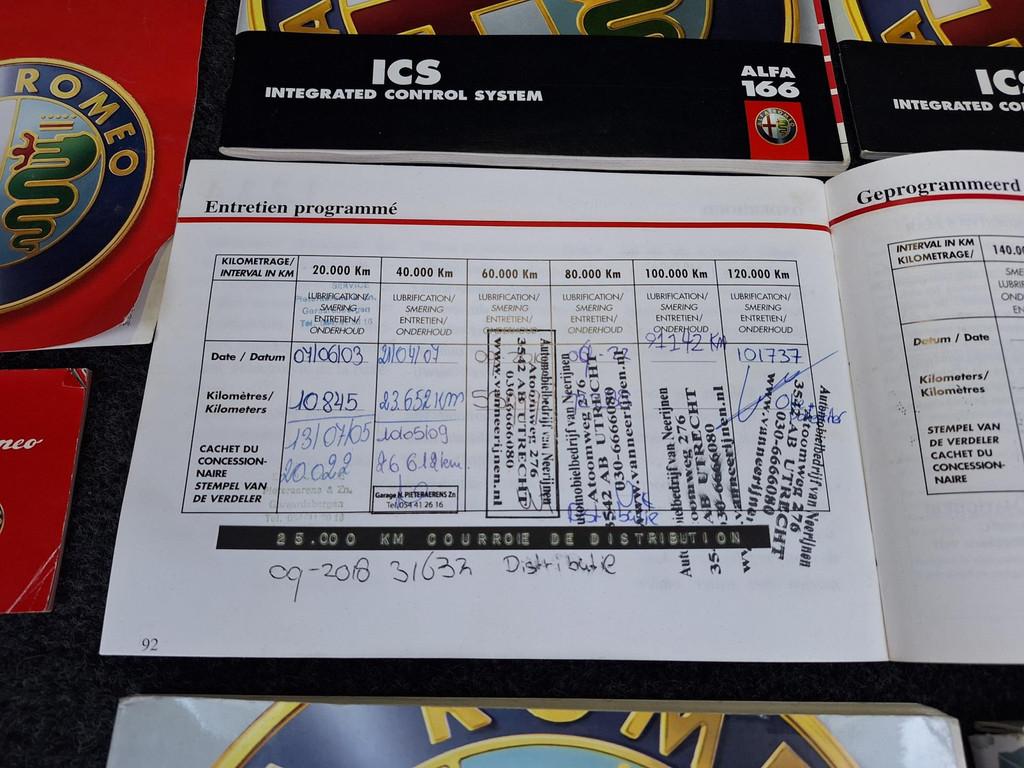 ROMEO
ICS
INTEGRATED CONTROL SYSTEM
ALFA
166
ICS
INTEGRATED CO
meo
Entretien programmé
KILOMETRAGE/
INTERVAL IN KM
20.000 Km
40.000 Km
60.000 Km
80.000 Km
100.000 Km
120.000 Km
LUBRIFICATION/
SMERING
ENTRETIEN/
ONDERHOUD
LUBRIFICATION/
SMERING
ENTRETIEN/
ONDERHOUD
LUBRIFICATION/
SMERING
ENTRETIEN/
ONDERHOUD
LUBRIFICATION/
SMERING
ENTRETIEN/
ONDERHOUD
LUBRIFICATION/
SMERING
ENTRETIEN/
ONDERHOUD
LUBRIFICATION/
SMERING
ENTRETIEN/
ONDERHOUD
Date / Datum
04/06/03
21/04/07
91142 KM
101737
Kilomètres/
Kilometers
10845
23.652 KM
CACHET DU
CONCESSION-
NAIRE
STEMPEL VAN
DE VERDELER
13/07/05
20.022
10/05/09
26 612 km
Pieteraerens & Zn.
Geraardsbergen
Garage N. PIETERAERENS Zn
Tel. 054 41 26 16
Automobielbedrijf van Neerijnen
Atoomweg 276
3542 AB UTRECHT
030-6666080
www.vanneerijnen.nl
Automobielbedrijf van Neerijnen
Atoomweg 276
3542 AB UTRECHT
030-6666080
www.vanneerijnen.nl
Distributie
Automobielbedrijf van Neerijnen
Atoomweg 276
3542 AB UTRECHT
030-6666080
www.vanneerijnen.nl
Automobielbedrijf van Neerijnen
Atoomweg 276
3542 AB UTRECHT
030-6666080
www.vanneerijnen.nl
25.000 KM COURROIE DE DISTRIBUTION
09-2018 31632 Distributie
92
Geprogrammeerd
INTERVAL IN KM
KILOMETRAGE/
140.0
Datum / Date
Kilometers/
Kilomètres
STEMPEL VAN
DE VERDELER
CACHET DU
CONCESSION-
NAIRE
ROM